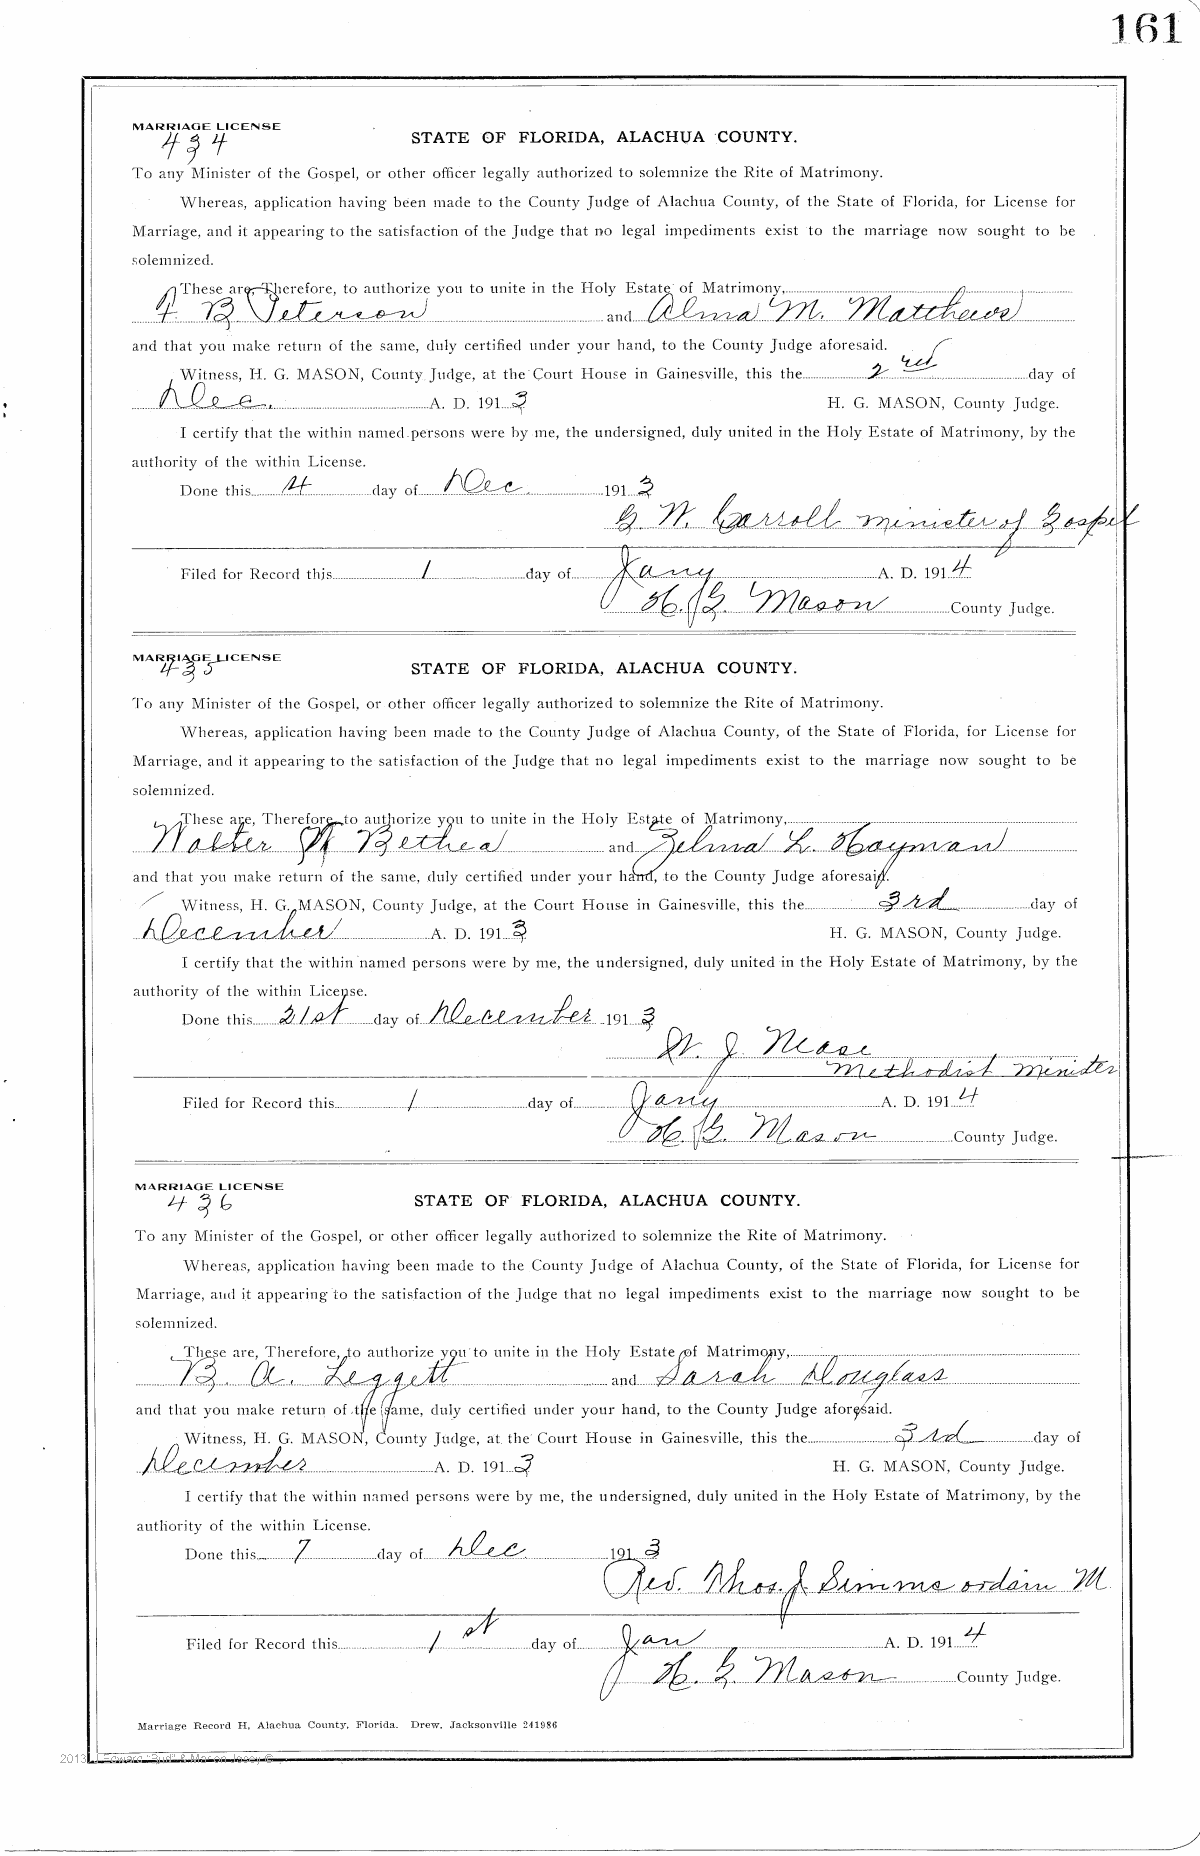 161
MARRIAGE LICENSE
434
STATE OF FLORIDA, ALACHUA COUNTY.
To any Minister of the Gospel, or other officer legally authorized to solemnize the Rite of Matrimony.
Whereas, application having been made to the County Judge of Alachua County, of the State of Florida, for License for
Marriage, and it appearing to the satisfaction of the Judge that no legal impediments exist to the marriage now sought to be
solemnized.
These are, Therefore, to authorize you to unite in the Holy Estate of Matrimony,
F B Peterson and Alma M. Matthews
and that you make return of the same, duly certified under your hand, to the County Judge aforesaid.
Witness, H. G. MASON, County Judge, at the Court House in Gainesville, this the 2nd day of
Dec. A. D. 1913 H. G. MASON, County Judge.
I certify that the within named persons were by me, the undersigned, duly united in the Holy Estate of Matrimony, by the
authority of the within License.
Done this 4 day of Dec 1913
G. W. Carroll minister of Gospel
Filed for Record this 1 day of Jany A. D. 1914
H. G. Mason County Judge.
MARRIAGE LICENSE
435
STATE OF FLORIDA, ALACHUA COUNTY.
To any Minister of the Gospel, or other officer legally authorized to solemnize the Rite of Matrimony.
Whereas, application having been made to the County Judge of Alachua County, of the State of Florida, for License for
Marriage, and it appearing to the satisfaction of the Judge that no legal impediments exist to the marriage now sought to be
solemnized.
These are, Therefore, to authorize you to unite in the Holy Estate of Matrimony,
Walter W Bethea and Zelma L. Hayman
and that you make return of the same, duly certified under your hand, to the County Judge aforesaid.
Witness, H. G. MASON, County Judge, at the Court House in Gainesville, this the 3rd day of
December A. D. 1913 H. G. MASON, County Judge.
I certify that the within named persons were by me, the undersigned, duly united in the Holy Estate of Matrimony, by the
authority of the within License.
Done this 21st day of December 1913
W. J. Nease
Methodist Minister
Filed for Record this 1 day of Jany A. D. 1914
H. G. Mason County Judge.
MARRIAGE LICENSE
436
STATE OF FLORIDA, ALACHUA COUNTY.
To any Minister of the Gospel, or other officer legally authorized to solemnize the Rite of Matrimony.
Whereas, application having been made to the County Judge of Alachua County, of the State of Florida, for License for
Marriage, and it appearing to the satisfaction of the Judge that no legal impediments exist to the marriage now sought to be
solemnized.
These are, Therefore, to authorize you to unite in the Holy Estate of Matrimony,
B. A. Leggett and Sarah Douglass
and that you make return of the same, duly certified under your hand, to the County Judge aforesaid.
Witness, H. G. MASON, County Judge, at the Court House in Gainesville, this the 3rd day of
December A. D. 1913 H. G. MASON, County Judge.
I certify that the within named persons were by me, the undersigned, duly united in the Holy Estate of Matrimony, by the
authority of the within License.
Done this 7 day of Dec 1913
Rev. Thos. J Simms ordain M
Filed for Record this 1st day of Jan A. D. 1914
H. G. Mason County Judge.
Marriage Record H, Alachua County, Florida. Drew, Jacksonville 241986
2013